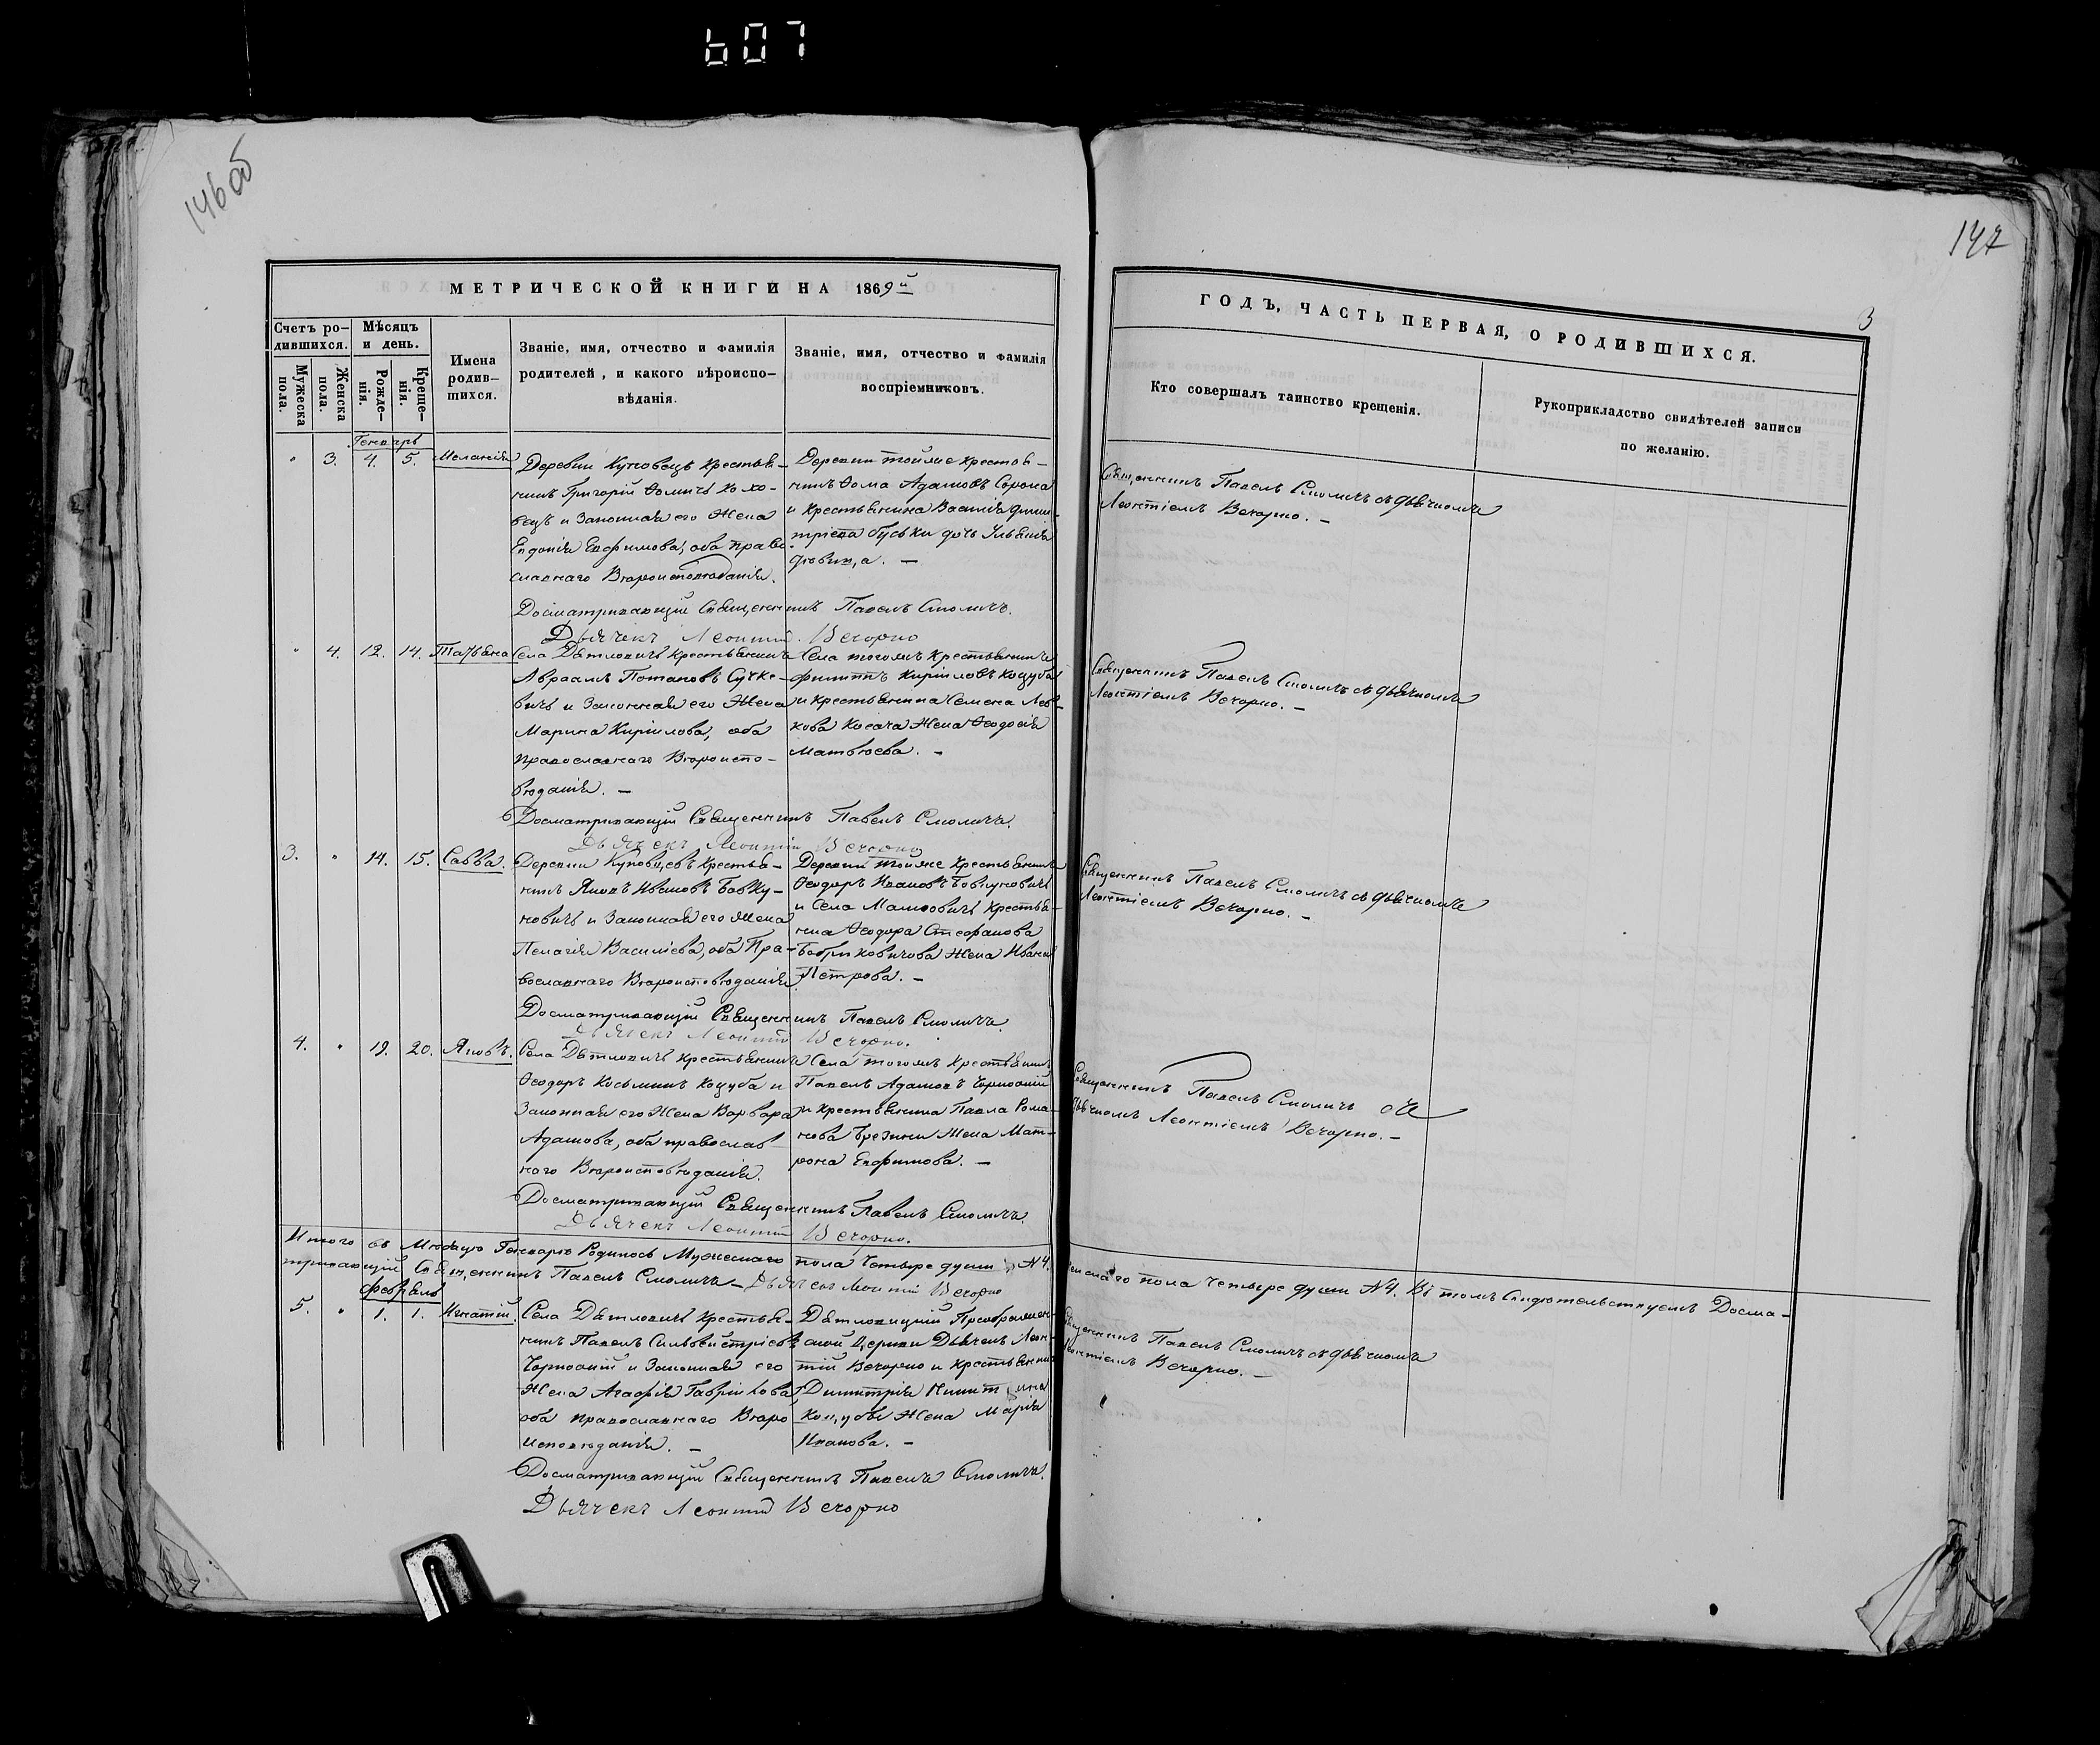 607
146 об
147
3
МЕТРИЧЕСКОЙ КНИГИ НА 1869й
ГОДЪ, ЧАСТЬ ПЕРВАЯ, О РОДИВШИХСЯ.
Счетъ ро-
дившихся.
Мужеска пола.
Женска пола.
Мѣсяцъ
и день.
Рожде-
нія.
Креще-
нія.
Имена
родив-
шихся.
Званіе, имя, отчество и фамилія
родителей, и какого вѣроиспо-
вѣданія.
Званіе, имя, отчество и фамилія
воспріемниковъ.
Кто совершалъ таинство крещенія.
Рукоприкладство свидѣтелей записи
по желанію.
Генварь
" 3. 4. 5. Меланія
Деревни крестья-
нинъ Григорій Ѳомичъ Хохо-
и Законная его Жена
Евдокія Евфимова, оба право-
славнаго Вѣроисповѣданія.
Деревни тойже крестья-
нинъ Ѳома Адамовъ Сорока
и крестьянина Василія Дими-
тріева дочь Ульянія
дѣвица. —
Священникъ Павелъ Смоличъ съ дьячкомъ
Леонтіемъ Вечорко. —
Досматривающій Священникъ Павелъ Смоличъ.
Дьячекъ Леонтій Вечорко
" 4. 12. 14. Татьяна
Села Дѣтловичъ крестьянинъ
Авраамъ Потаповъ Сучке-
вичъ и Законная его Жена
Марина Кирилова, оба
православнаго Вѣроиспо-
вѣданія. —
Села тогожъ крестьянинъ
Филиппъ Кириловъ Коцуба
и крестьянина Семена Лев-
кова Косача Жена Ѳеодосія
Матвѣева. —
Священникъ Павелъ Смоличъ съ дьячкомъ
Леонтіемъ Вечорко. —
Досматривающій Священникъ Павелъ Смоличъ.
Дьячекъ Леонтій Вечорко
3. " 14. 15. Савва.
Деревни крестья-
нинъ Яковъ Ивановъ Бовку-
новичъ и Законная его Жена
Пелагія Василіева, оба Пра-
вославнаго Вѣроисповѣданія.
Деревни тойже крестьянинъ
Ѳеодоръ Ивановъ Бовкуновичъ
и Села крестья-
нина Ѳеодора Стефанова
Жена
Петрова. —
Священникъ Павелъ Смоличъ съ дьячкомъ
Леонтіемъ Вечорко. —
Досматривающій Священникъ Павелъ Смоличъ.
Дьячекъ Леонтій Вечорко.
4. " 19. 20. Яковъ.
Села Дѣтловичъ крестьянинъ
Ѳеодоръ Косьминъ Коцуба и
Законная его Жена Варвара
Адамова, оба православ-
наго Вѣроисповѣданія.
Села тогожъ крестьянинъ
Павелъ Адамовъ Чорноокій
и крестьянина Павла Рома-
нова Жена Мат-
рона Евфимова. —
Священникъ Павелъ Смоличъ съ
дьячкомъ Леонтіемъ Вечорко. —
Досматривающій Священникъ Павелъ Смоличъ.
Дьячекъ Леонтій Вечорко.
Итого въ Мѣсяцѣ Генварѣ Родилось Мужескаго пола Четыре души N4. Женскаго пола Четыре души N4. Въ томъ Свидѣтельствуемъ Досма-
тривающій Священникъ Павелъ Смоличъ — Дьячекъ Леонтій Вечорко
Февраль
5. " 1. 1. Игнатій.
Села Дѣтловичъ крестья-
нинъ Павелъ Сильвестріевъ
Чорноокій и Законная его
Жена Агафія Гавріилова,
оба православнаго Вѣро-
исповѣданія. —
Дѣтловицкій Преображен-
ской Церкви Дьячекъ Леон-
тій Вечорко и крестьянина
Димитрія
Коцубы Жена Марія
Иванова. —
Священникъ Павелъ Смоличъ съ дьячкомъ
Леонтіемъ Вечорко. —
Досматривающій Священникъ Павелъ Смоличъ.
Дьячекъ Леонтій Вечорко